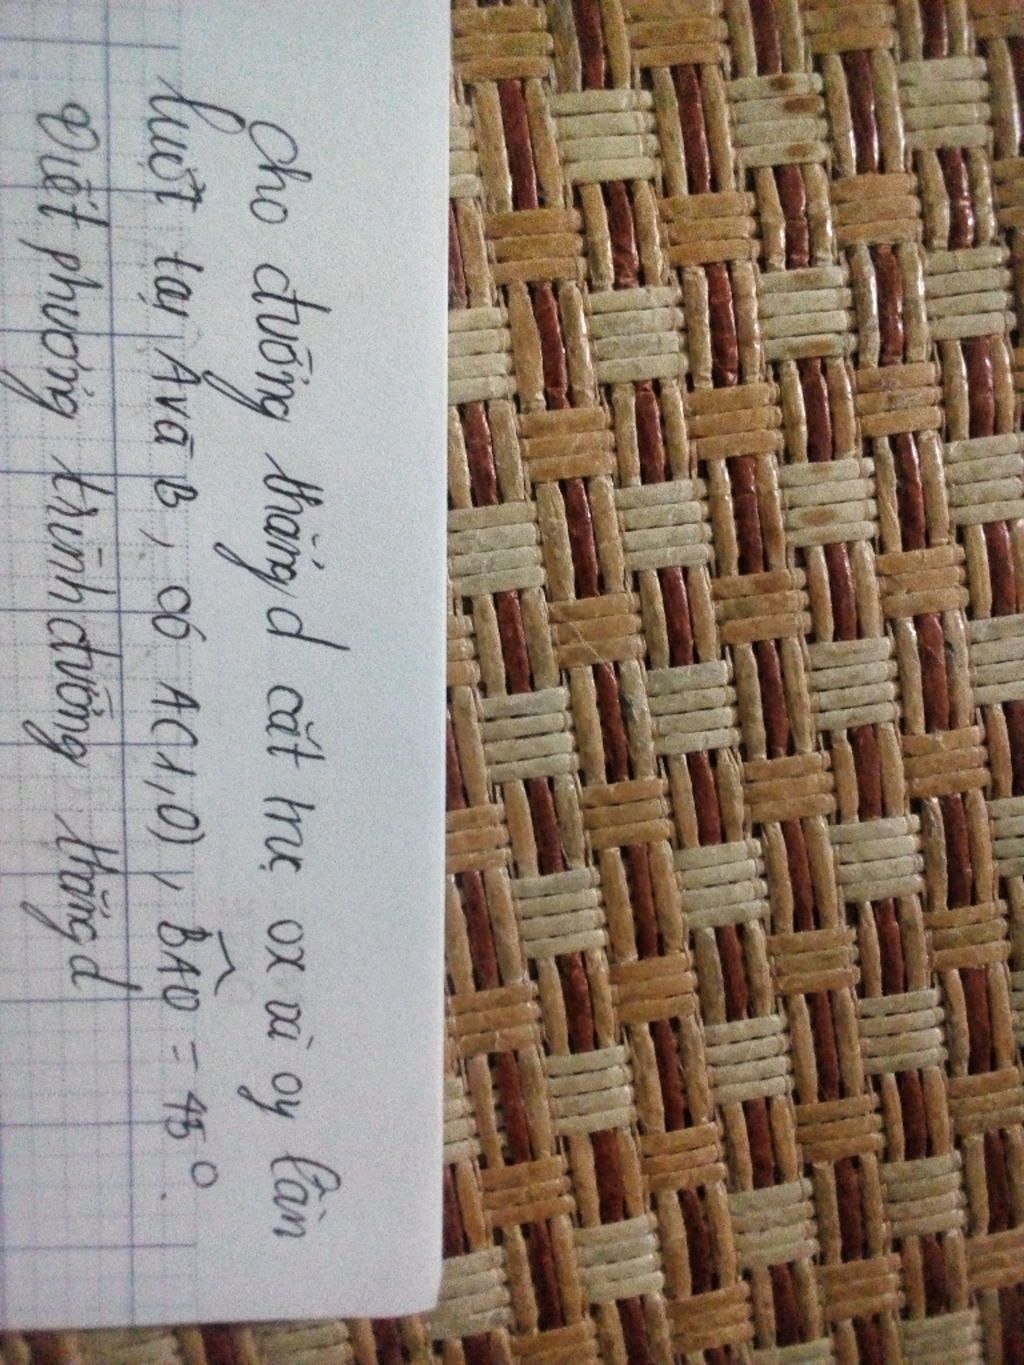 Cho đường thẳng d cắt trục ox và oy lần
lượt tại A và B, có A(1,0), BAO = 45°.
Viết phương trình đường thẳng d